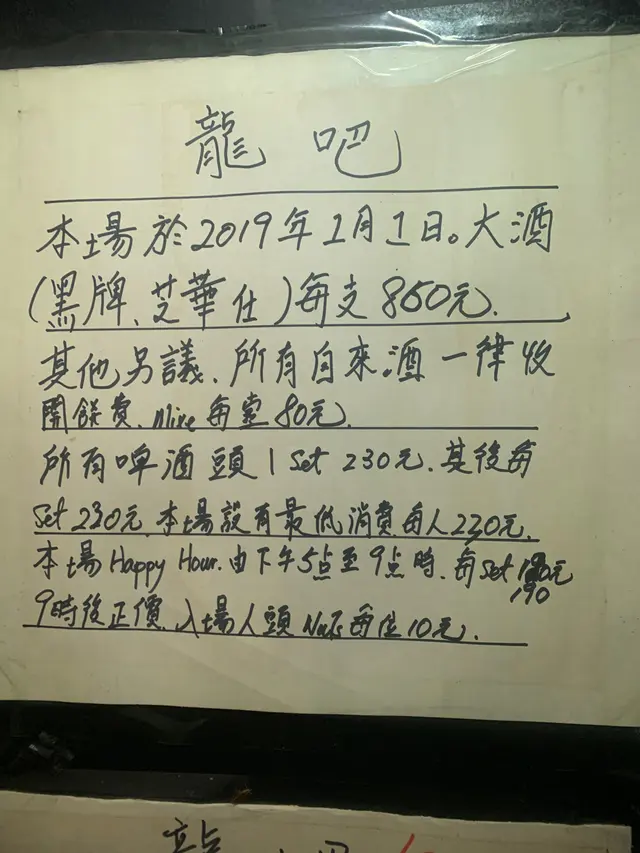 龍吧
本場於2019年1月1日。大酒
(黑牌、芝華仕)每支850元.
其他另議、所有自來酒一律收
開餅費、Mixe每壺80元.
所有啤酒頭1 Set 230元.其後每
Set 230元.本場設有最低消費每人230元.
本場Happy Hour.由下午5点至9点時.每Set 190元
190
9時後正價.入場人頭Nuts每位10元.
龍